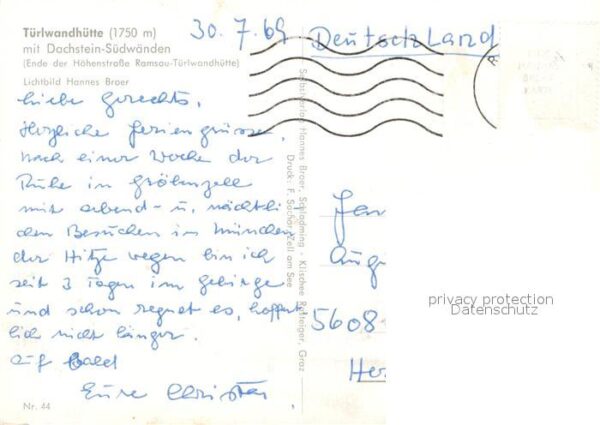 Türlwandhütte (1750 m)
mit Dachstein-Südwänden
(Ende der Höhenstraße Ramsau-Türlwandhütte)
Lichtbild Hannes Broer
30.7.69
Deutschland
Liebe Gerechts,
Herzliche Feriengrüsse,
nach einer Woche der
Ruhe in Gröbenzell
mit abend- u. nächtli
chen Besuchen in München
der Hitze wegen bin ich
seit 3 Tagen im Gebirge
und schon regnet es, hoffent
lich nicht länger.
Auf bald
Eure
Nr. 44
Selbstverlag Hannes Broer, Schladming - Klischee Reisteiger, Graz
Druck: F. Sochor, Zell am See
5608
privacy protection
Datenschutz